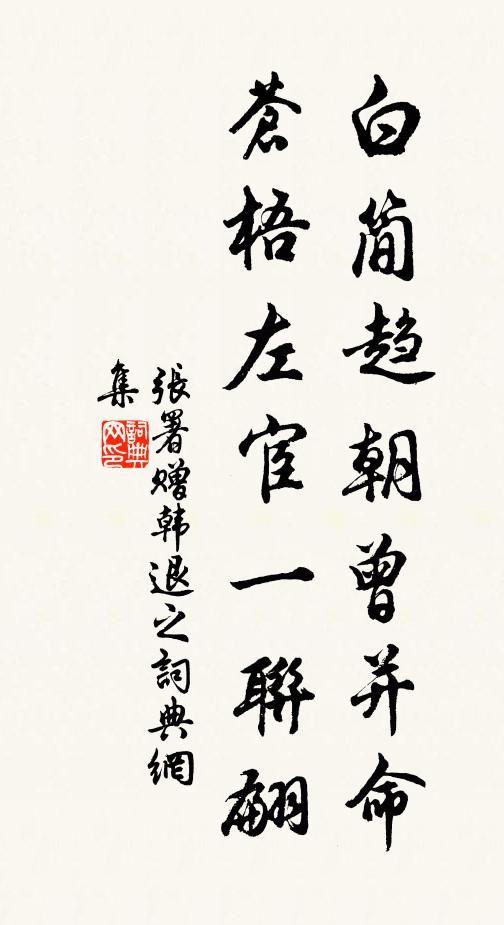 白简趋朝曾并命
蒼梧左宦一聯翩
張署赠韩退之詞典網
集
詞典
网印